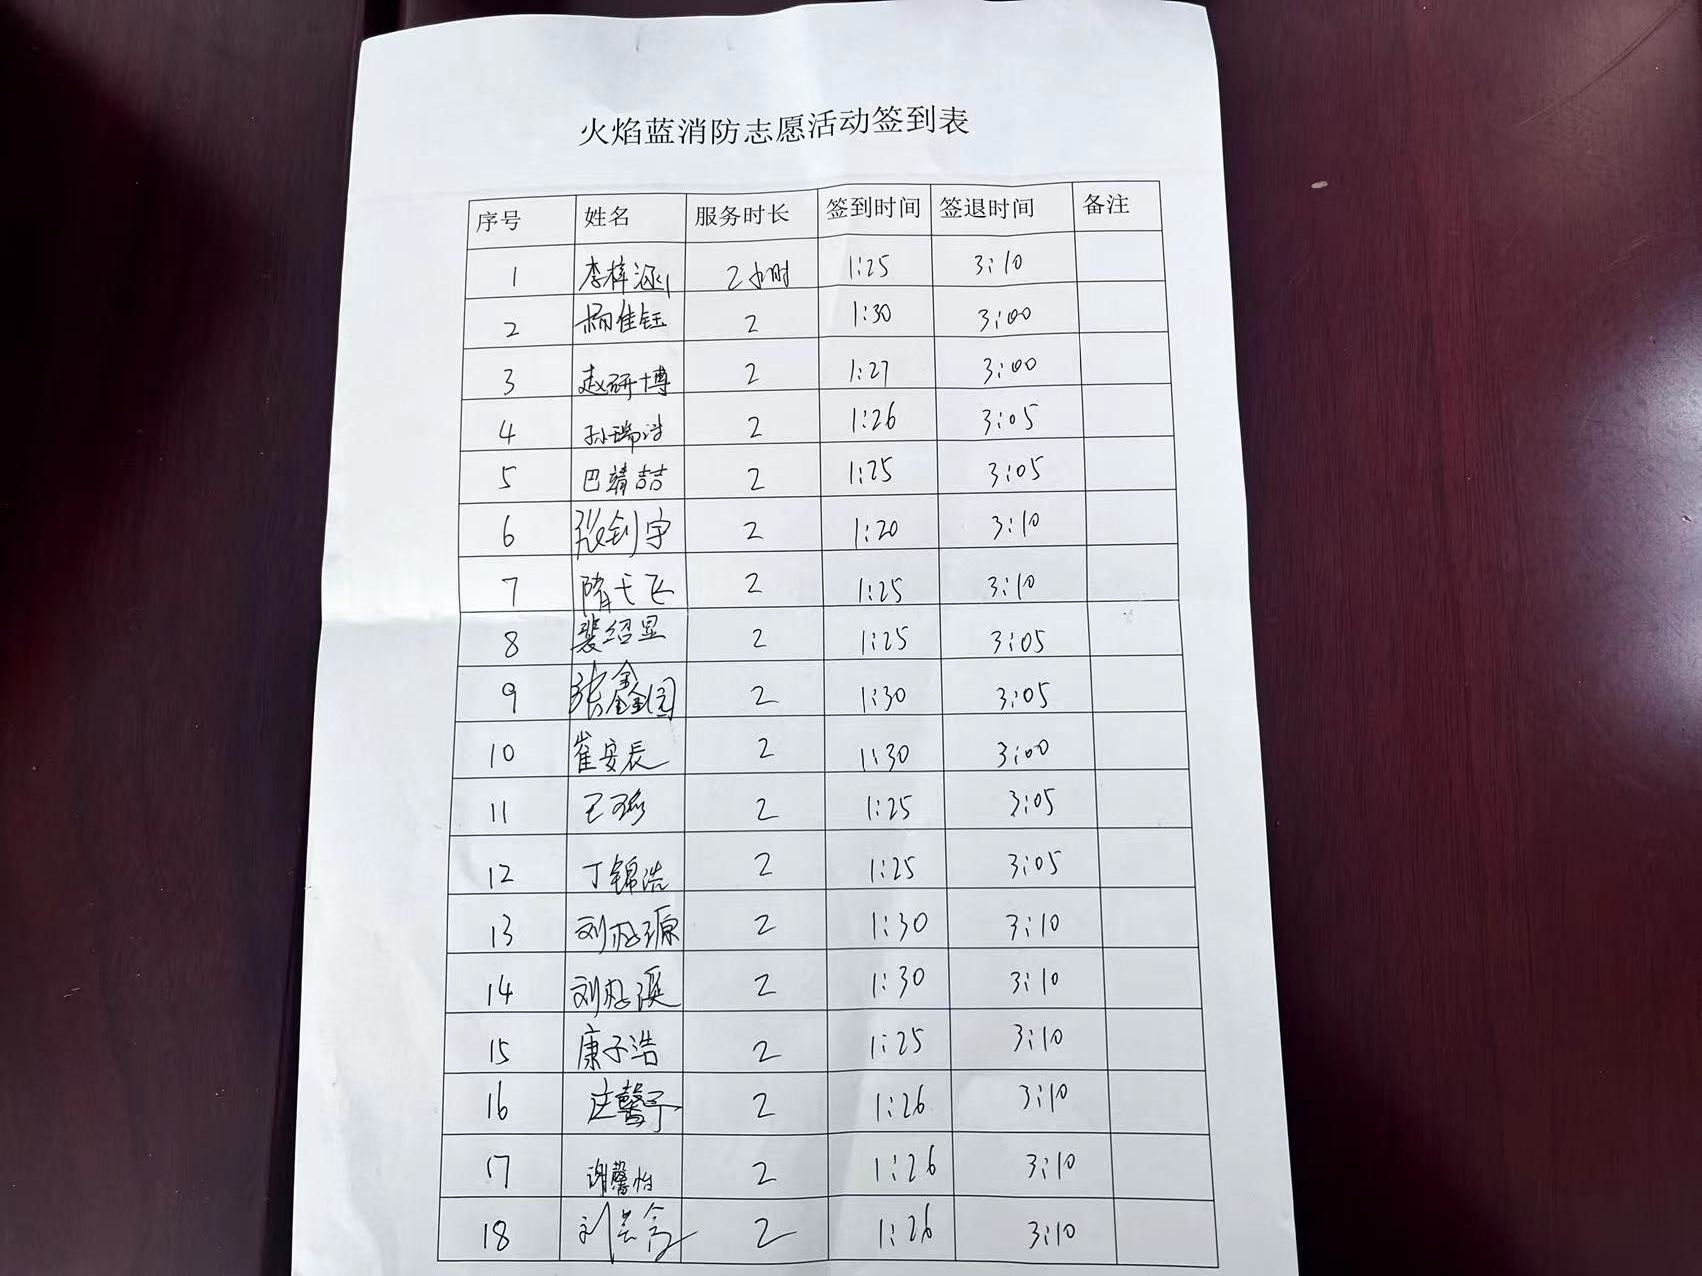 火焰蓝消防志愿活动签到表
序号 姓名 服务时长 签到时间 签退时间 备注
1 李梓涵 2小时 1:25 3:10
2 杨佳钰 2 1:30 3:00
3 赵研博 2 1:27 3:00
4 孙瑞浩 2 1:26 3:05
5 巴靖喆 2 1:25 3:05
6 张钊宇 2 1:20 3:10
7 隋弋飞 2 1:25 3:10
8 裴绍昱 2 1:25 3:05
9 张鑫园 2 1:30 3:05
10 崔安辰 2 1:30 3:00
11 2 1:25 3:05
12 丁锦浩 2 1:25 3:05
13 2 1:30 3:10
14 2 1:30 3:10
15 康子浩 2 1:25 3:10
16 庄馨予 2 1:26 3:10
17 谢馨怡 2 1:26 3:10
18 2 1:26 3:10